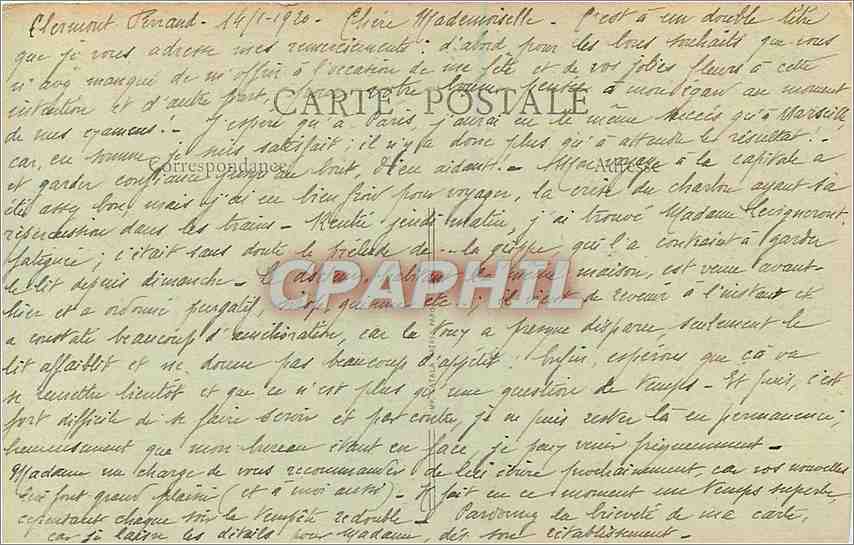 Clermont Ferrand - 14/1-1920 - Chère Mademoiselle - C'est à un double titre
que je vous adresse mes remerciements : d'abord pour les bons souhaits que vous
m'avez manqué de m'offrir à l'occasion de ma fête et de vos jolies fleurs à cette
intention et d'autre part, pour votre bonne pensée à mon égard au moment
CARTE POSTALE
de mes examens ! - J'espère qu'à Paris, j'aurai eu le même succès qu'à Marseille,
car, en somme, je suis satisfait ; il n'y a donc plus qu'à attendre le résultat ! -
Correspondance Adresse
et garder confiance au bout, Dieu aidant ! - Mon voyage à la capitale a
été assez bon, mais j'ai eu bien froid pour voyager, la crise du charbon ayant sa
répercussion dans les trains - Rentré jeudi matin, j'ai trouvé Madame
fatiguée ; c'était sans doute le prélude de la grippe qui l'a contraint à garder
le lit depuis dimanche - maison, est venu avant-
CPARHTL
hier et a ordonné purgatif, sirop, etc ; il vient de revenir à l'instant et
a constaté beaucoup d'amélioration, car la toux a presque disparu, seulement le
lit affaiblit et ne donne pas beaucoup d'appétit. Enfin, espérons que ça va
se remettre bientôt et que ce n'est plus qu'une question de temps - Et puis, c'est
fort difficile de se faire servir et par contre, je ne puis rester là en permanence ;
heureusement que mon bureau étant en face, je peux venir fréquemment -
Madame me charge de vous recommander de lui écrire prochainement, car vos nouvelles
lui font grand plaisir (et à moi aussi) - Il fait en ce moment un temps superbe,
cependant chaque soir la tempête redouble - Pardonnez la brièveté de ma carte,
car je laisse les détails pour Madame, dès son rétablissement -